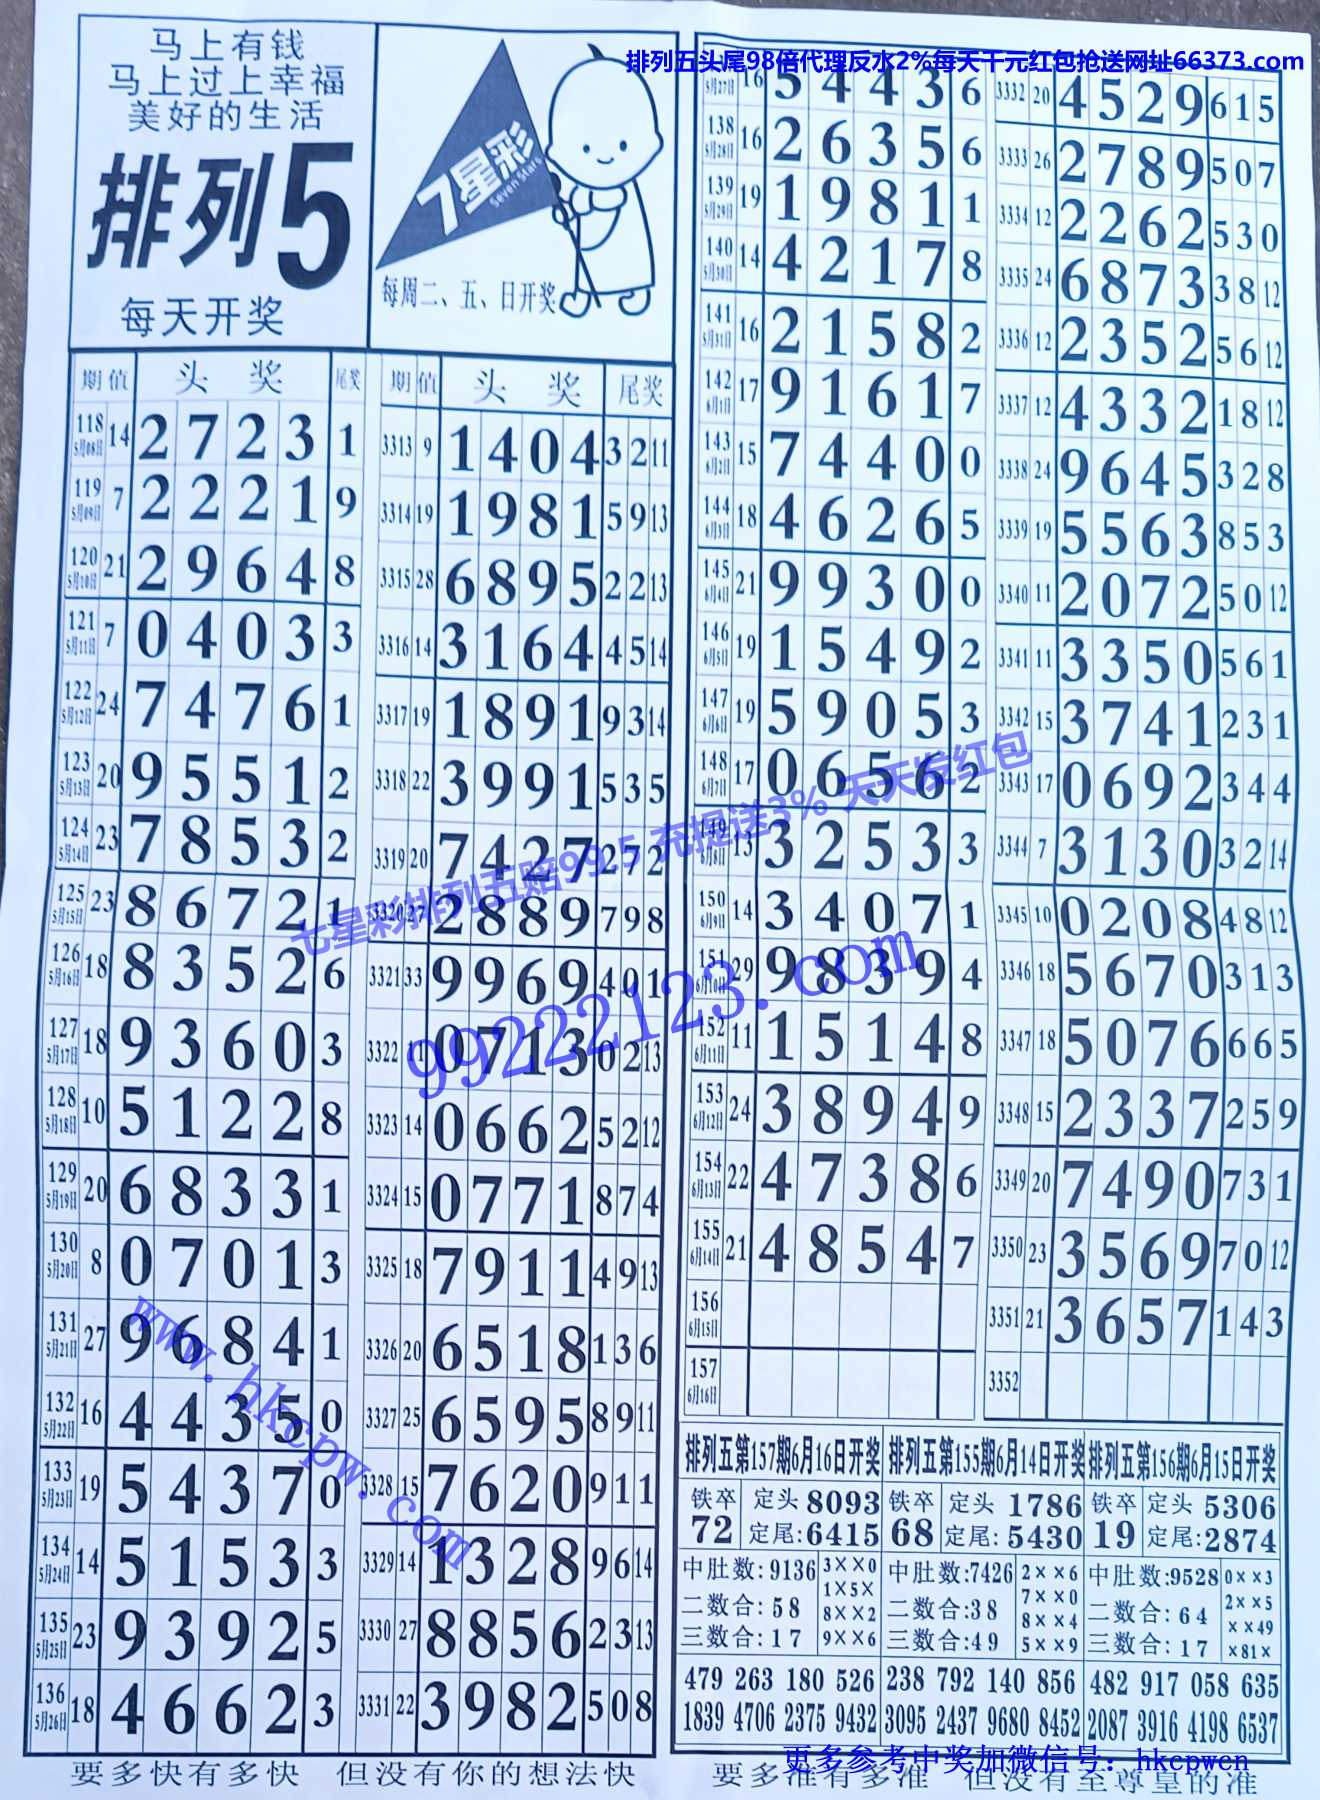 排列五头尾98倍代理反水2%每天千元红包抢送网址66373.com
马上有钱
马上过上幸福
美好的生活
排列5
每天开奖
7星彩
Seven Stars
每周二、五、日开奖
期 值 头 奖 尾奖
118 5月08日 14 2 7 2 3 1
119 5月09日 7 2 2 2 1 9
120 5月10日 21 2 9 6 4 8
121 5月11日 7 0 4 0 3 3
122 5月12日 24 7 4 7 6 1
123 5月13日 20 9 5 5 1 2
124 5月14日 23 7 8 5 3 2
125 5月15日 23 8 6 7 2 1
126 5月16日 18 8 3 5 2 6
127 5月17日 18 9 3 6 0 3
128 5月18日 10 5 1 2 2 8
129 5月19日 20 6 8 3 3 1
130 5月20日 8 0 7 0 1 3
131 5月21日 27 9 6 8 4 1
132 5月22日 16 4 4 3 5 0
133 5月23日 19 5 4 3 7 0
134 5月24日 14 5 1 5 3 3
135 5月25日 23 9 3 9 2 5
136 5月26日 18 4 6 6 2 3
期 值 头 奖 尾奖
3313 9 1 4 0 4 3 2 11
3314 19 1 9 8 1 5 9 13
3315 28 6 8 9 5 2 2 13
3316 14 3 1 6 4 4 5 14
3317 19 1 8 9 1 9 3 14
3318 22 3 9 9 1 5 3 5
3319 20 7 4 2 7 2 7 2
3320 27 2 8 8 9 7 9 8
3321 33 9 9 6 9 4 0 1
3322 11 0 7 1 3 0 2 13
3323 14 0 6 6 2 5 2 12
3324 15 0 7 7 1 8 7 4
3325 18 7 9 1 1 4 9 13
3326 20 6 5 1 8 1 3 6
3327 25 6 5 9 5 8 9 11
3328 15 7 6 2 0 9 1 1
3329 14 1 3 2 8 9 6 14
3330 27 8 8 5 6 2 3 13
3331 22 3 9 8 2 5 0 8
5月27日 16 5 4 4 3 6
138 5月28日 16 2 6 3 5 6
139 5月29日 19 1 9 8 1 1
140 5月30日 14 4 2 1 7 8
141 5月31日 16 2 1 5 8 2
142 6月1日 17 9 1 6 1 7
143 6月2日 15 7 4 4 0 0
144 6月3日 18 4 6 2 6 5
145 6月4日 21 9 9 3 0 0
146 6月5日 19 1 5 4 9 2
147 6月6日 19 5 9 0 5 3
148 6月7日 17 0 6 5 6 2
149 6月8日 13 3 2 5 3 3
150 6月9日 14 3 4 0 7 1
151 6月10日 29 9 8 3 9 4
152 6月11日 11 1 5 1 4 8
153 6月12日 24 3 8 9 4 9
154 6月13日 22 4 7 3 8 6
155 6月14日 21 4 8 5 4 7
156 6月15日
157 6月16日
3332 20 4 5 2 9 6 1 5
3333 26 2 7 8 9 5 0 7
3334 12 2 2 6 2 5 3 0
3335 24 6 8 7 3 3 8 12
3336 12 2 3 5 2 5 6 12
3337 12 4 3 3 2 1 8 12
3338 24 9 6 4 5 3 2 8
3339 19 5 5 6 3 8 5 3
3340 11 2 0 7 2 5 0 12
3341 11 3 3 5 0 5 6 1
3342 15 3 7 4 1 2 3 1
3343 17 0 6 9 2 3 4 4
3344 7 3 1 3 0 3 2 14
3345 10 0 2 0 8 4 8 12
3346 18 5 6 7 0 3 1 3
3347 18 5 0 7 6 6 6 5
3348 15 2 3 3 7 2 5 9
3349 20 7 4 9 0 7 3 1
3350 23 3 5 6 9 7 0 12
3351 21 3 6 5 7 1 4 3
3352
七星彩排列五赔99.5 充提送3% 天天发红包
99222123.com
www.hkcpw.com
排列五第157期6月16日开奖
铁卒 72 定头 8093
定尾:6415
中肚数:9136
二数合: 58
三数合: 17
3××0
1×5×
8××2
9××6
479 263 180 526
1839 4706 2375 9432
排列五第155期6月14日开奖
铁卒 68 定头 1786
定尾: 5430
中肚数:7426
二数合:38
三数合:49
2××6
7××0
8××4
5××9
238 792 140 856
3095 2437 9680 8452
排列五第156期6月15日开奖
铁卒 19 定头 5306
定尾:2874
中肚数:9528
二数合: 64
三数合: 17
0××3
2××5
××49
×81×
482 917 058 635
2087 3916 4198 6537
更多参考中奖加微信号: hkcpwcn
要多快有多快 但没有你的想法快
要多准有多准 但没有至尊皇的准